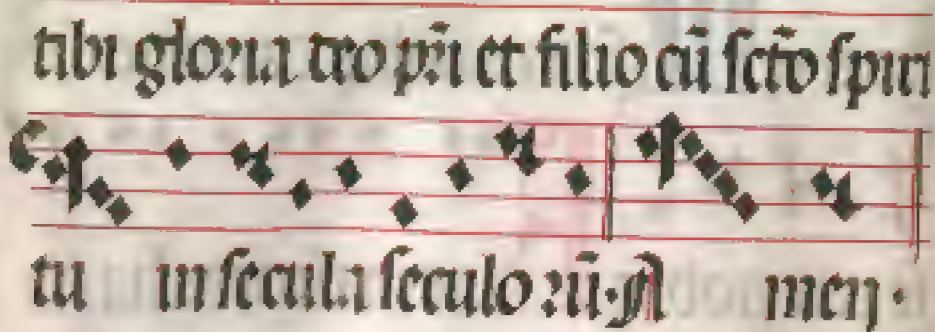 tibi gloria deo pr̄i et filio cū sct̄o spiri
tu in secula seculorū. A men.